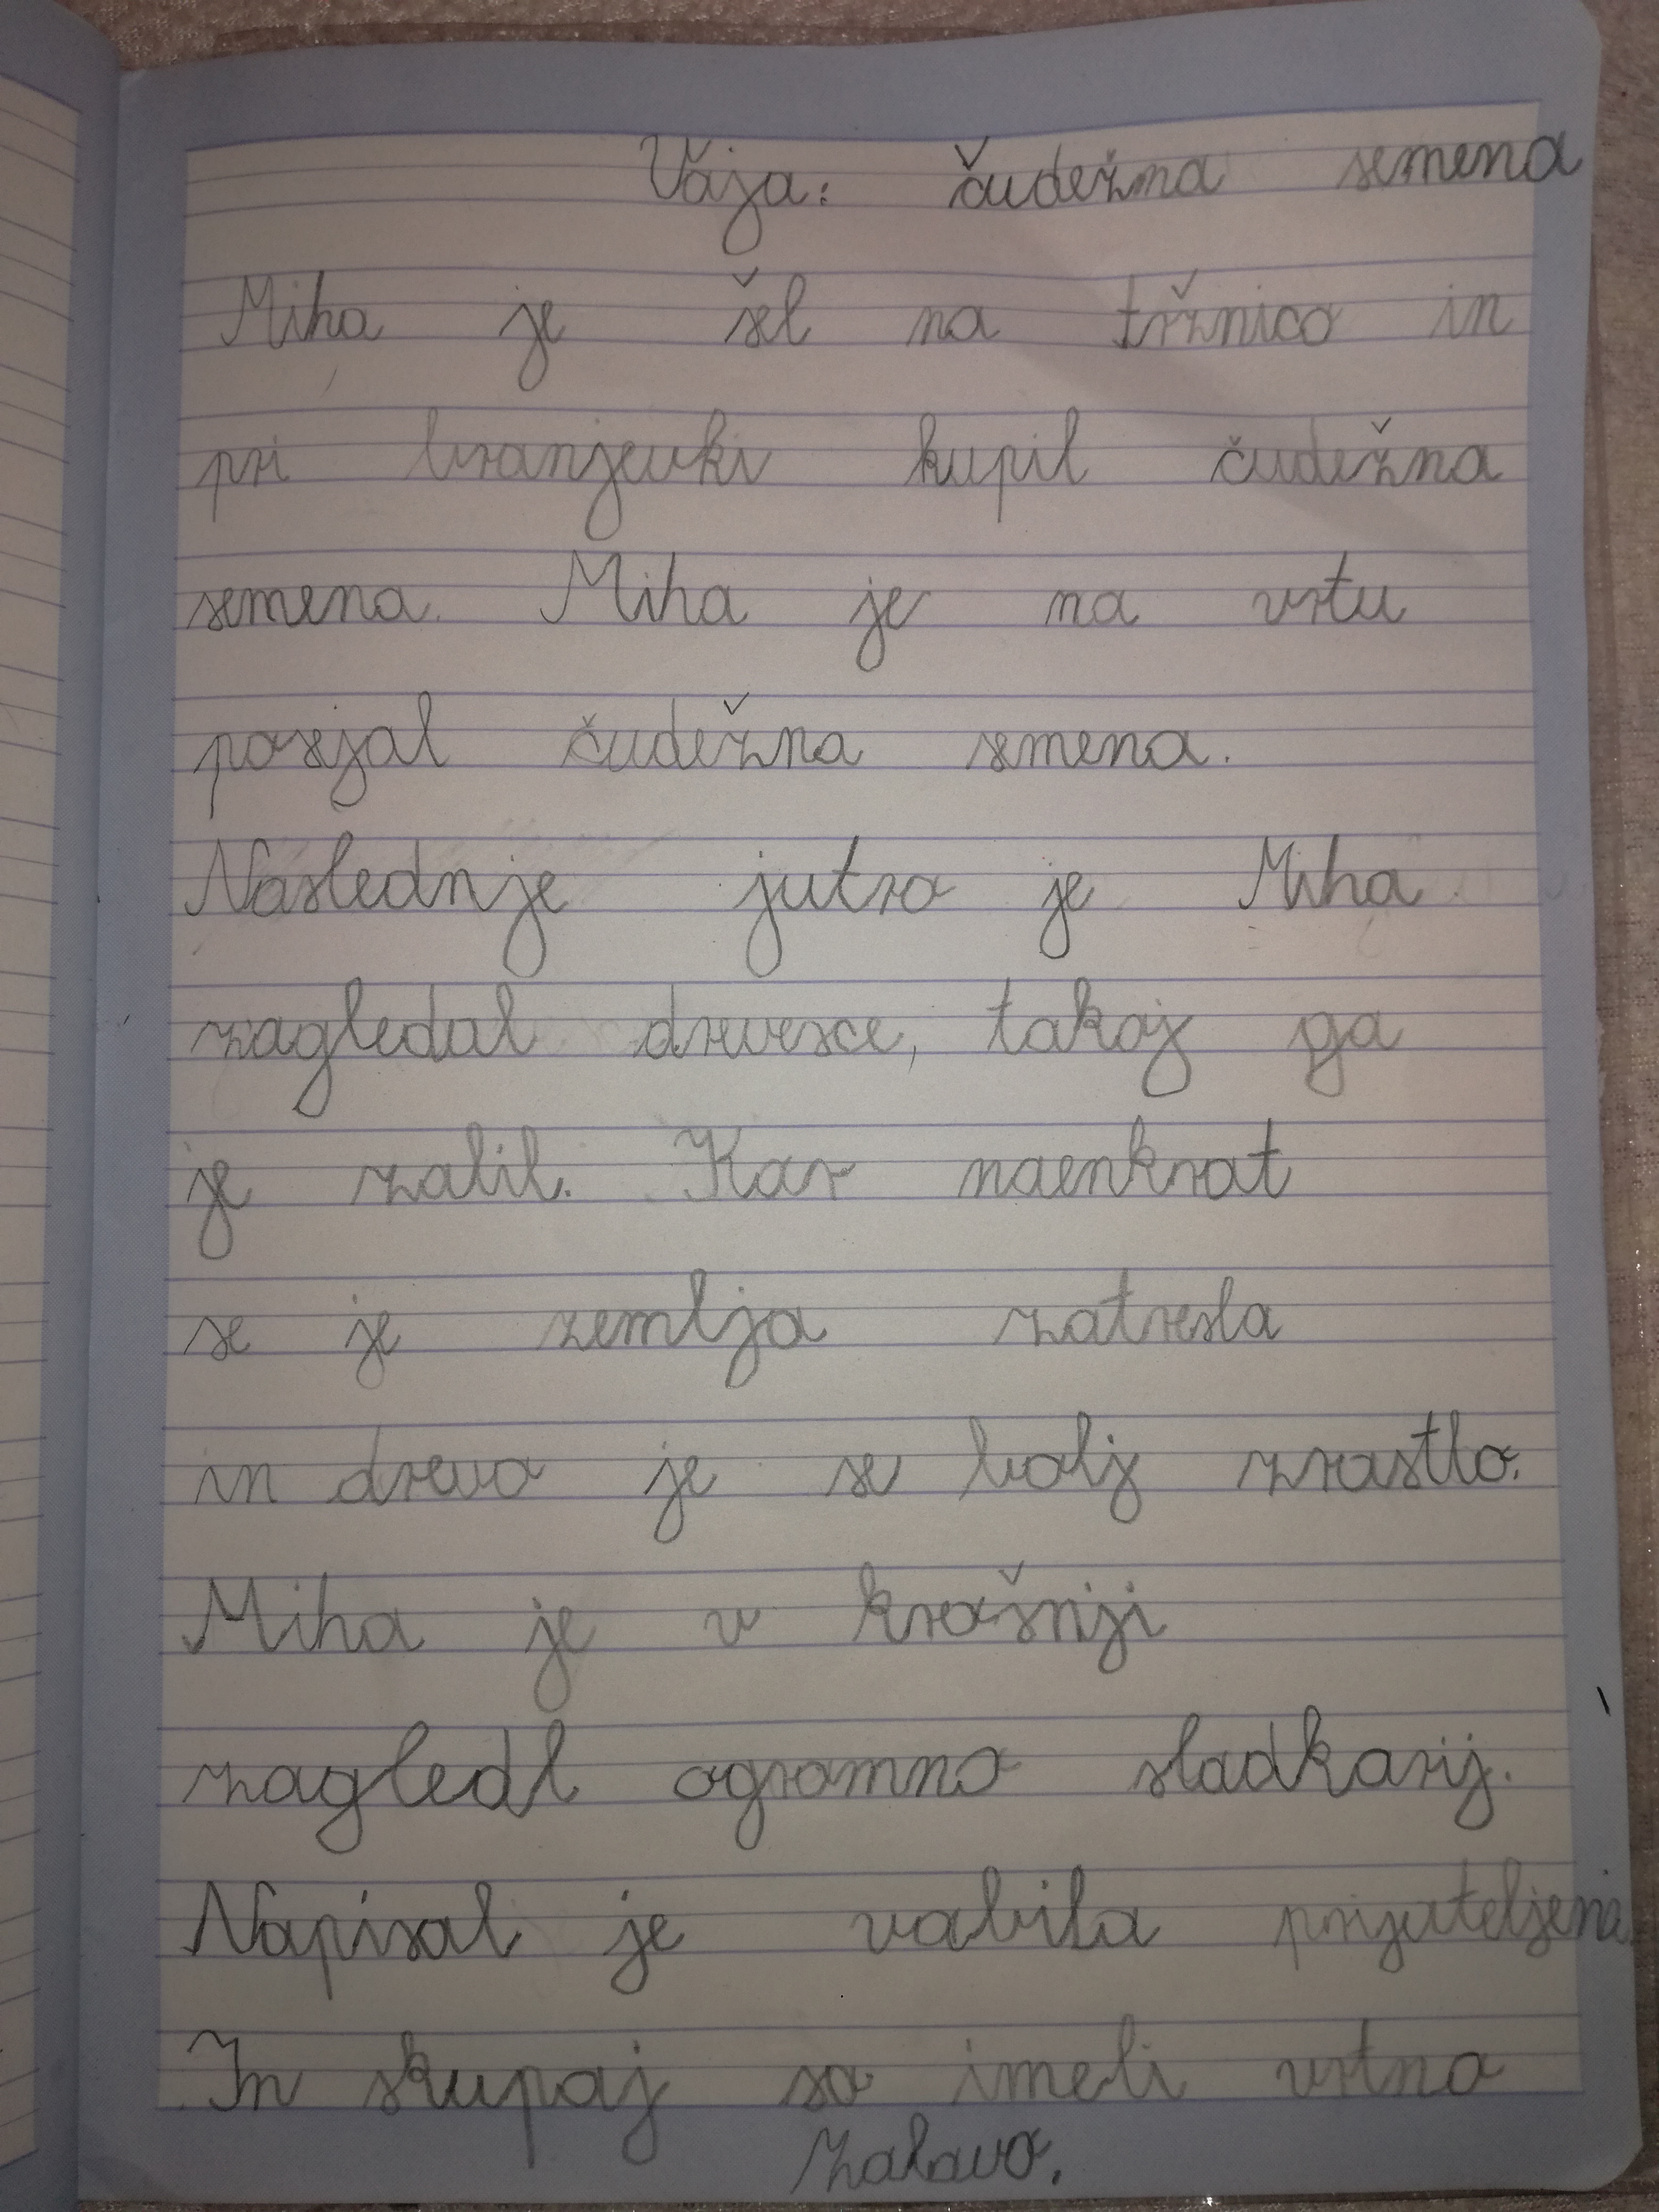 Vaja: čudežna semena
Miha je šel na tržnico in
pri branjevki kupil čudežna
semena. Miha je na vrtu
posejal čudežna semena.
Naslednje jutro je Miha
zagledal drevesce, takoj ga
je zalil. Kar naenkrat
se je zemlja zatresla
in drevo je se bolj zrastlo.
Miha je v krošnji
zagledl ogromno sladkarij.
Napisal je vabila
In skupaj so imeli vrtno
zabavo.